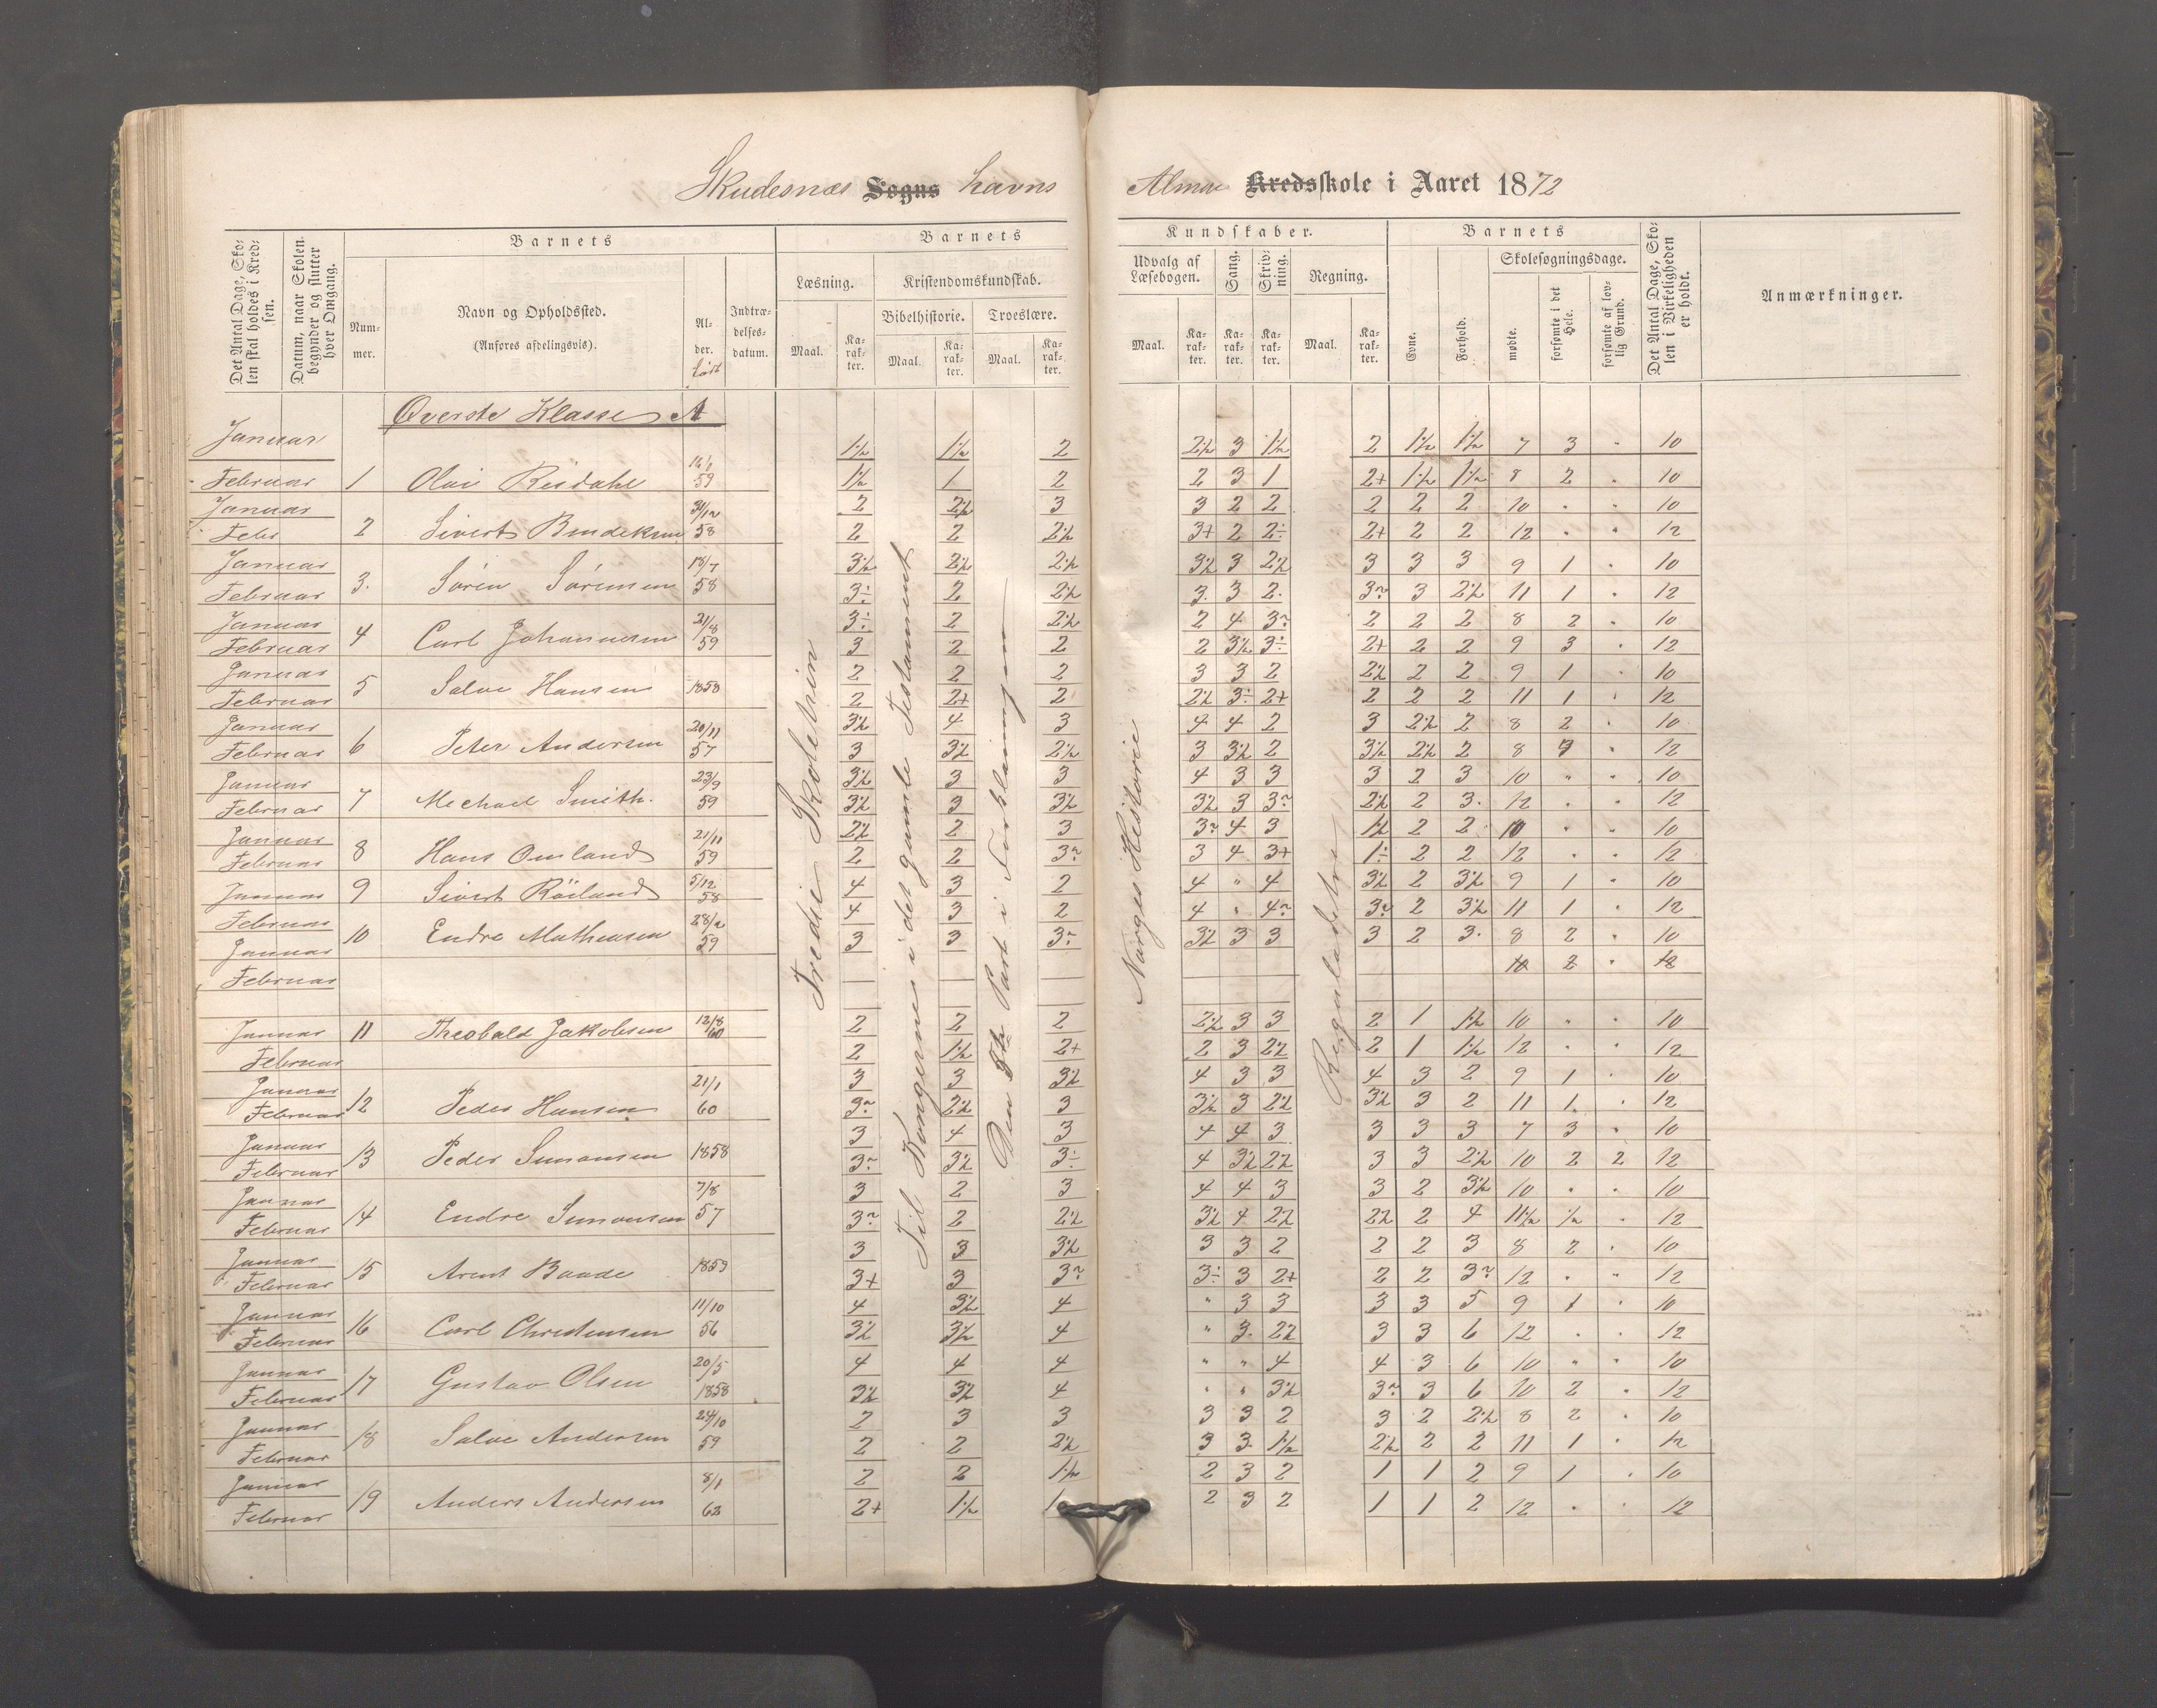 Skudesnæs Sogns havns Almue Kredsskole i Aaret 1872
Det Antal Dage, Skolen skal holdes i Kredsen.
Datum, naar Skolen begynder og slutter hver Omgang.
Barnets
Nummer.
Navn og Opholdssted.
(Anføres afdelingsvis).
Alder.
født
Indtrædelsesdatum.
Barnets Kundskaber.
Læsning.
Maal.
Karakter.
Kristendomskundskab.
Bibelhistorie.
Maal.
Karakter.
Troeslære.
Maal.
Karakter.
Udvalg af Læsebogen.
Maal.
Karakter.
Sang.
Karakter.
Skrivning.
Karakter.
Regning.
Maal.
Karakter.
Barnets
Evne.
Forhold.
Skolesøgningsdage.
mødte.
forsømte i det Hele.
forsømte af lovlig Grund.
Det Antal Dage, Skolen i Virkeligheden er holdt.
Anmærkninger.
Øverste Klasse A
Tredie Skoletrin
Til Kongernes i det gamle Testamment
Den 3die Part i Forklaringen
Norges Historie
Januar 1½ 1½ 2 2½ 3 1½ 2 1½ 1½ 7 3 " 10
Februar 1 Olai Risdahl 16/1 59 1½ 1 2 2 3 1 2+ 1½ 1½ 8 2 . 10
Januar 2 2½ 3 3 2 2 2 2 2 10 . . 10
Febr 2 Sivert Bendiksen 31/12 58 2 2 2½ 3+ 2 2÷ 2+ 2 2 12 . . 12
Januar 3½ 2½ 2½ 3½ 3 2½ 3 3 3 9 1 . 10
Februar 3. Sören Sörensen 18/7 58 3÷ 2 2½ 3. 3 2. 3~ 3 2½ 11 1 . 12
Januar 3÷ 2 2½ 2 4 3~ 2 2 2 8 2 . 10
Februar 4 Carl Johannesen 21/8 59 3 2 2 2 3½ 3÷ 2+ 2 2 9 3 . 12
Januar 2 2 2 3 3 2 2½ 2 2 9 1 . 10
Februar 5 Salve Hansen 1858 2 2+ 2 2½ 3÷ 2+ 2 2 2 11 1 . 12
Januar 3½ 4 3 4 4 2 3 2½ 2 8 2 . 10
Februar 6 Peter Andersen 20/11 57 3 3½ 2½ 3 3½ 2 3½ 2½ 2 8 . 12
Januar 3½ 3 3 4 3 3 3 2 3 10 " " 10
Februar 7 Michael Smith. 23/9 59 3½ 3 3½ 3½ 3 3~ 2½ 2 3. 12 . . 12
Januar 2½ 2 3 3~ 4 3 1½ 2 2 10 . . 10
Februar 8 Hans Omland 21/11 59 2 2 3~ 3 4 3+ 1÷ 2 2 12 . . 12
Januar 9 Sivert Röiland 5/12 58 4 3 2 4 " 4 3½ 2 3½ 9 1 . 10
Februar 4 3 2 4 " 4~ 3~ 2 3½ 11 1 . 12
Januar 10 Endre Mathiasen 28/2 59 3 3 3~ 3½ 3 3 3 2 3. 8 2 . 10
Februar 10 2 .
Januar 11 Theobald Jakobsen 12/8 60 2 2 2 2½ 3 3 2 1 1½ 10 . . 10
Februar 2 1½ 2+ 2 3 2½ 2 1 1½ 12 . . 12
Januar 21/1 3 3 3½ 4 3 3 4 3 2 9 1 . 10
Februar 12 Peder Hansen 60 3~ 2½ 3 3½ 3 2½ 3½ 3 2 11 1. . 12
Januar 3 4 3 4 4 3 3 3 3 7 3 . 10
Februar 13 Peder Simonsen 1858 3~ 3½ 3÷ 4 3½ 2½ 3 3 2½ 10 2 2 12
Januar 7/8 3 2 3 4 4 3 3 2 3½ 10 . . 10
Februar 14 Endre Simonsen 57 3~ 2 2½ 3½ 4 2½ 2½ 2 4 11½ ½ . 12
Januar 3 3 3½ 3 3 2 2 2 3 8 2 . 10
Februar 15 Arent Baade 1859 3+ 3 3~ 3÷ 3 2+ 2 2 3~ 12 . " 12
Januar 11/10 4 3½ 4 " 3 3 3 3 5 9 1 . 10
Februar 16 Carl Christensen 56 3½ 3½ 4 " 3. 2½ 3 3 6 12 . . 12
Januar 20/5 4 4 4 " " 4 4 3 6 10 " . 10
Februar 17 Gustav Olsen 1858 3½ 3½ 4 " " 3½ 3~ 3 6 10 2 . 12
Januar 24/10 2 3 3 3 3 2 3 2 2½ 8 2 . 10
Februar 18 Salve Andersen 59 2 2 2½ 3 3. 1½ 2½ 2 2 11 1 . 12
Januar 8/1 2 2 1½ 2 3 2 1 1 2 9 1 . 10
Februar 19 Anders Andersen 62 2+ 1½ 1 2 3 2 1 1 2 12 . . 12